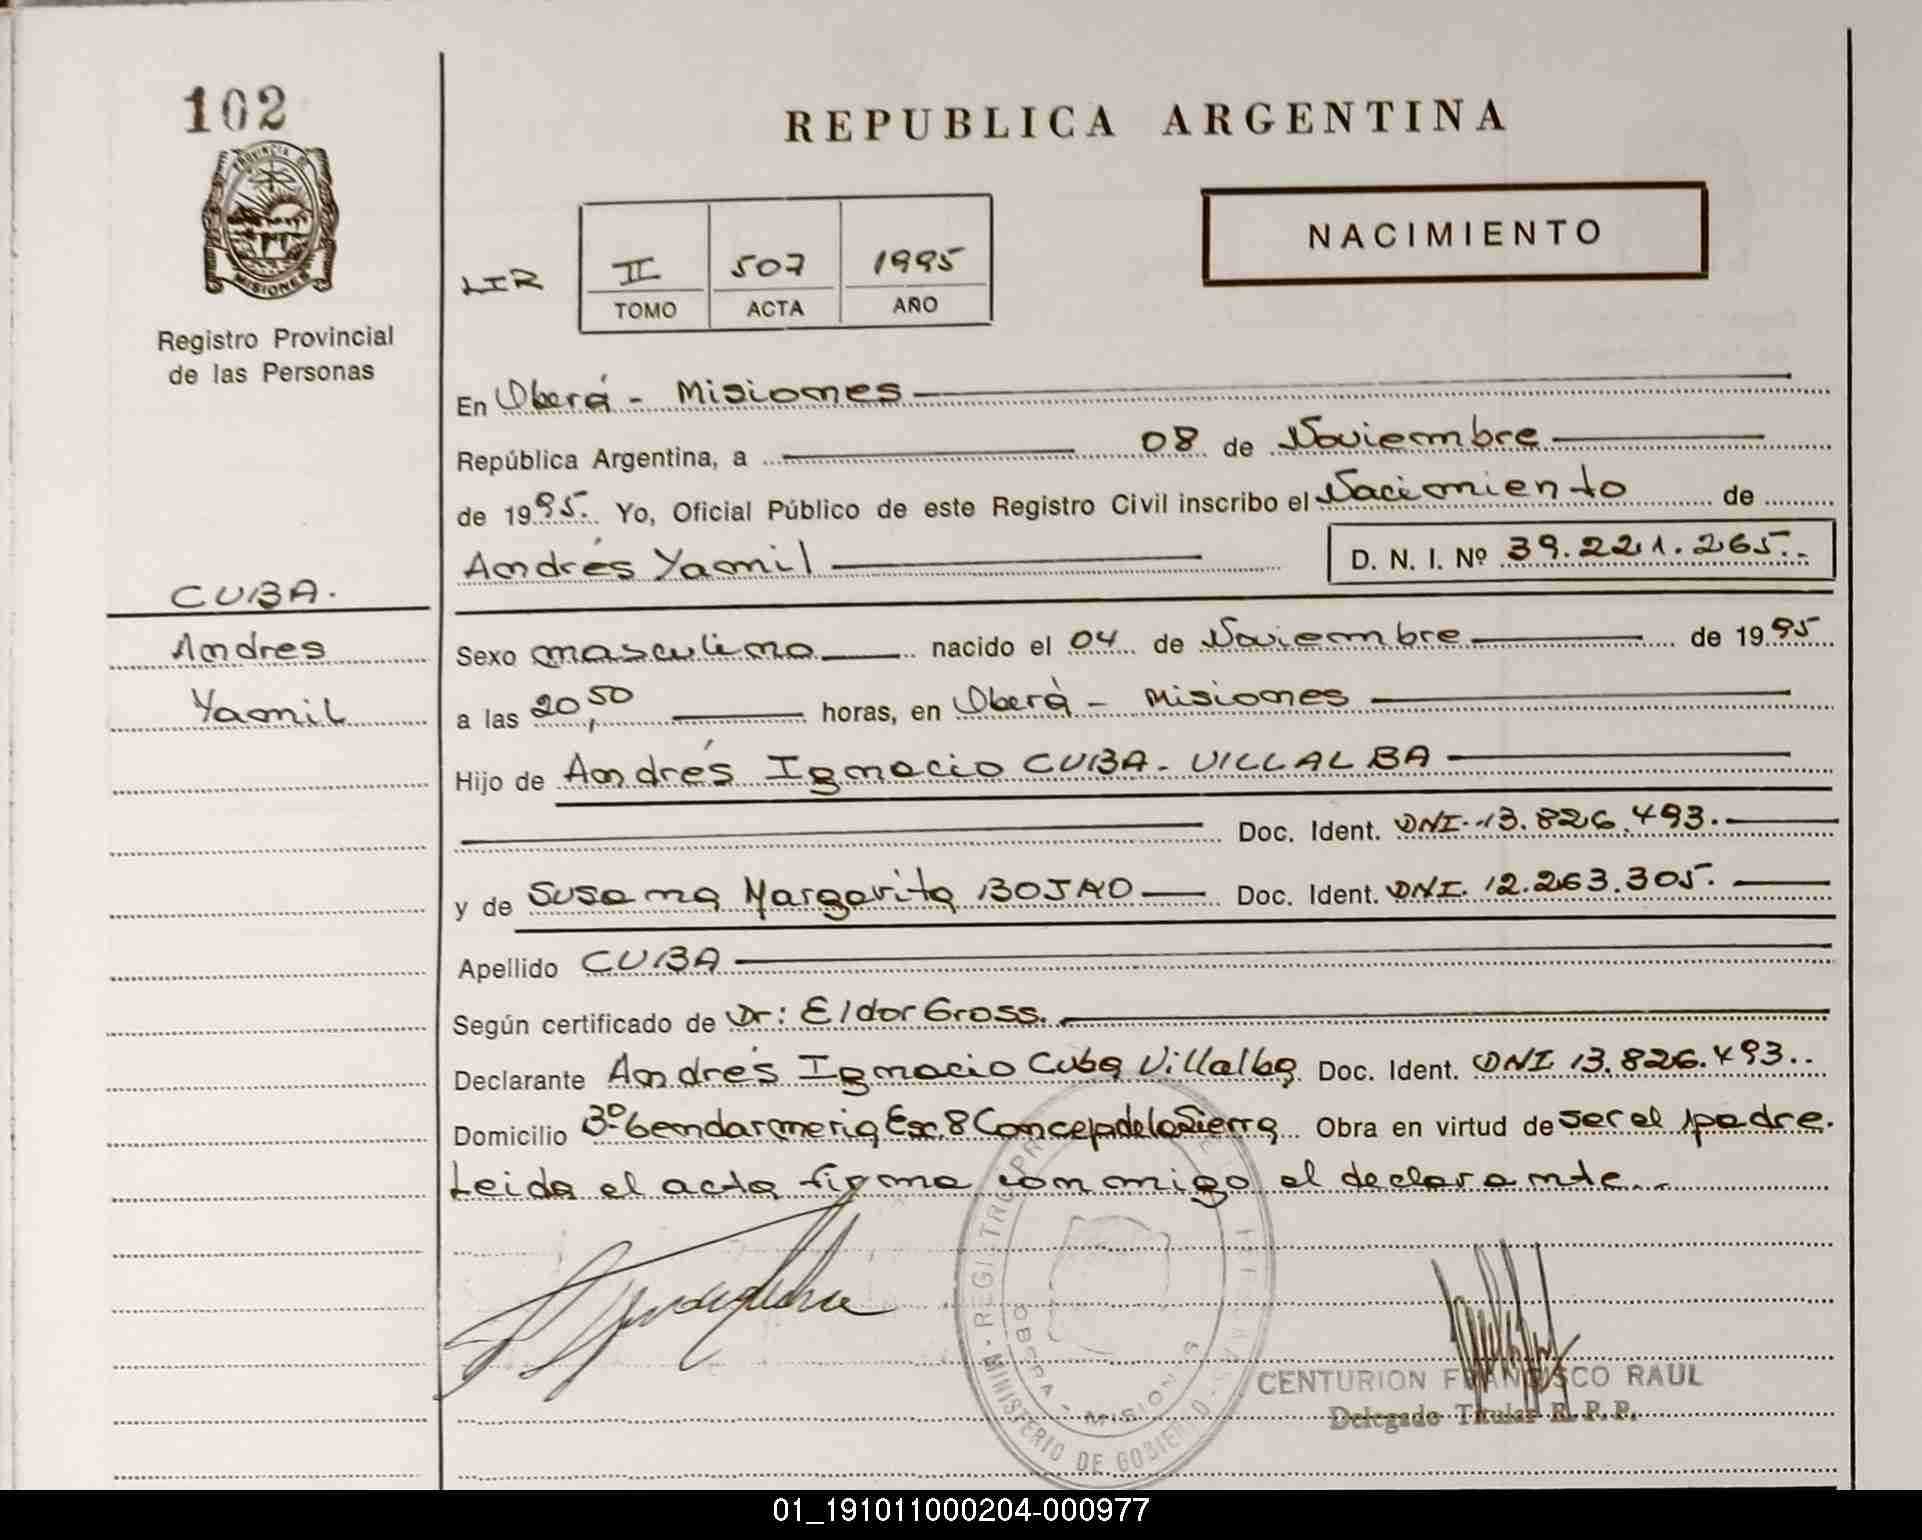 102
PROVINCIA DE
MISIONES
Registro Provincial
de las Personas
REPUBLICA ARGENTINA
NACIMIENTO
II 507 1995
TOMO ACTA AÑO
En Oberá - Misiones
República Argentina, a 08 de Noviembre
de 1995. Yo, Oficial Público de este Registro Civil inscribo el Nacimiento de
Andrés Yamil D. N. I. Nº 39.221.265.
CUBA.
Andres
Yamil
Sexo masculino nacido el 04 de Noviembre de 1995
a las 20,50 horas, en Oberà - Misiones
Hijo de Andrés Ignacio CUBA - VILLALBA
Doc. Ident. DNI. 13.826.493.
y de Susana Margarita Doc. Ident. DNI. 12.263.305.
Apellido CUBA
Según certificado de Dr: Eldor Gross.
Declarante Andrés Ignacio Cuba Villalba Doc. Ident. DNI 13.826.493..
Domicilio 3º Gendarmeria Esc. 8 Concep de la Sierra Obra en virtud de ser el padre.
Leida el acta firma conmigo el declarante..
MINISTERIO DE GOBIERNO
OBERA - MISIONES
CENTURION FRANCISCO RAUL
Delegado Titular R. P. P.
01_191011000204-000977